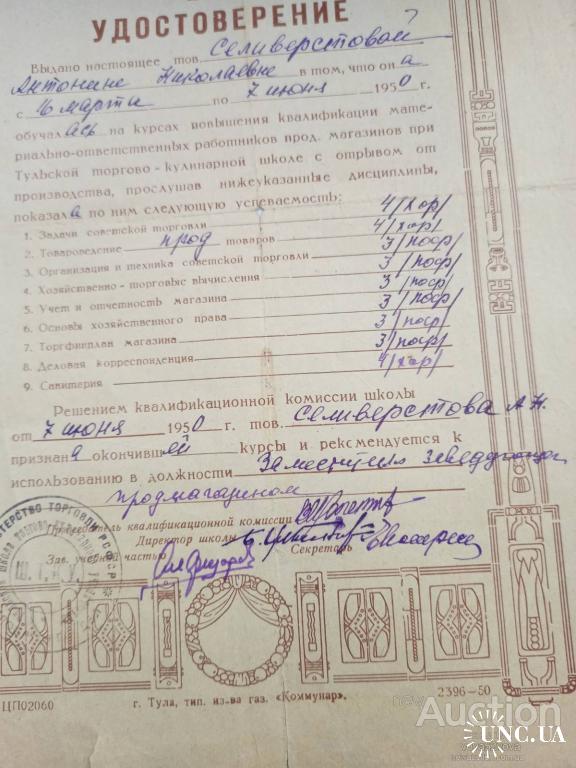 УДОСТОВЕРЕНИЕ
Выдано настоящее тов. Селиверстовой
Антонине Николаевне в том, что он а
с 16 марта по 7 июня 1950 г.
обучалась на курсах повышения квалификации мате-
риально-ответственных работников прод. магазинов при
Тульской торгово-кулинарной школе с отрывом от
производства, прослушав нижеуказанные дисциплины,
показала по ним следующую успеваемость:
1. Задачи советской торговли 4/хор/
2. Товароведение прод товаров 4/хор/
3. Организация и техника советской торговли 3/поср/
4. Хозяйственно-торговые вычисления 3/поср/
5. Учет и отчетность магазина 3/поср/
6. Основы хозяйственного права 3/поср/
7. Торгфинплан магазина 3/поср/
8. Деловая корреспонденция 3/поср/
9. Санитария 4/хор/
Решением квалификационной комиссии школы
от 7 июня 1950 г. тов. Селиверстова А.Н.
признана окончившей курсы и рекомендуется к
использованию в должности Заместителя заведующей
продмагазином
Председатель квалификационной комиссии
Директор школы Секретарь
Зав. учебной частью
ТОРГОВЛИ РСФСР
ЦП02060
г. Тула, тип. из-ва газ. «Коммунар».
2396-50
Auction
UNC.UA